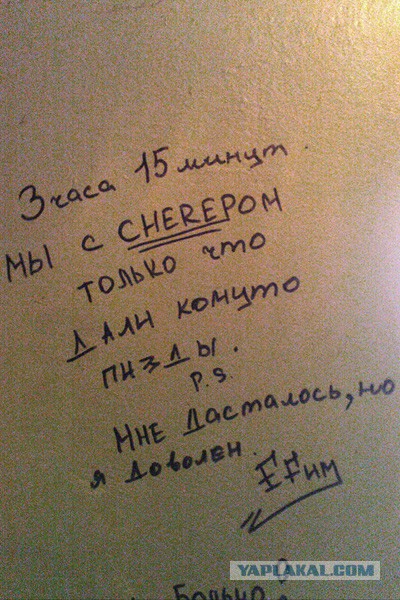 3 часа 15 минут.
МЫ С CHEREPOM
ТОЛЬКО ЧТО
ДАЛИ КОМУТО
ПИЗДЫ.
P.S.
МНЕ ДАСТАЛОСЬ, НО
Я ДОВОЛЕН.
EFим
Больно
YAPLAKAL.COM